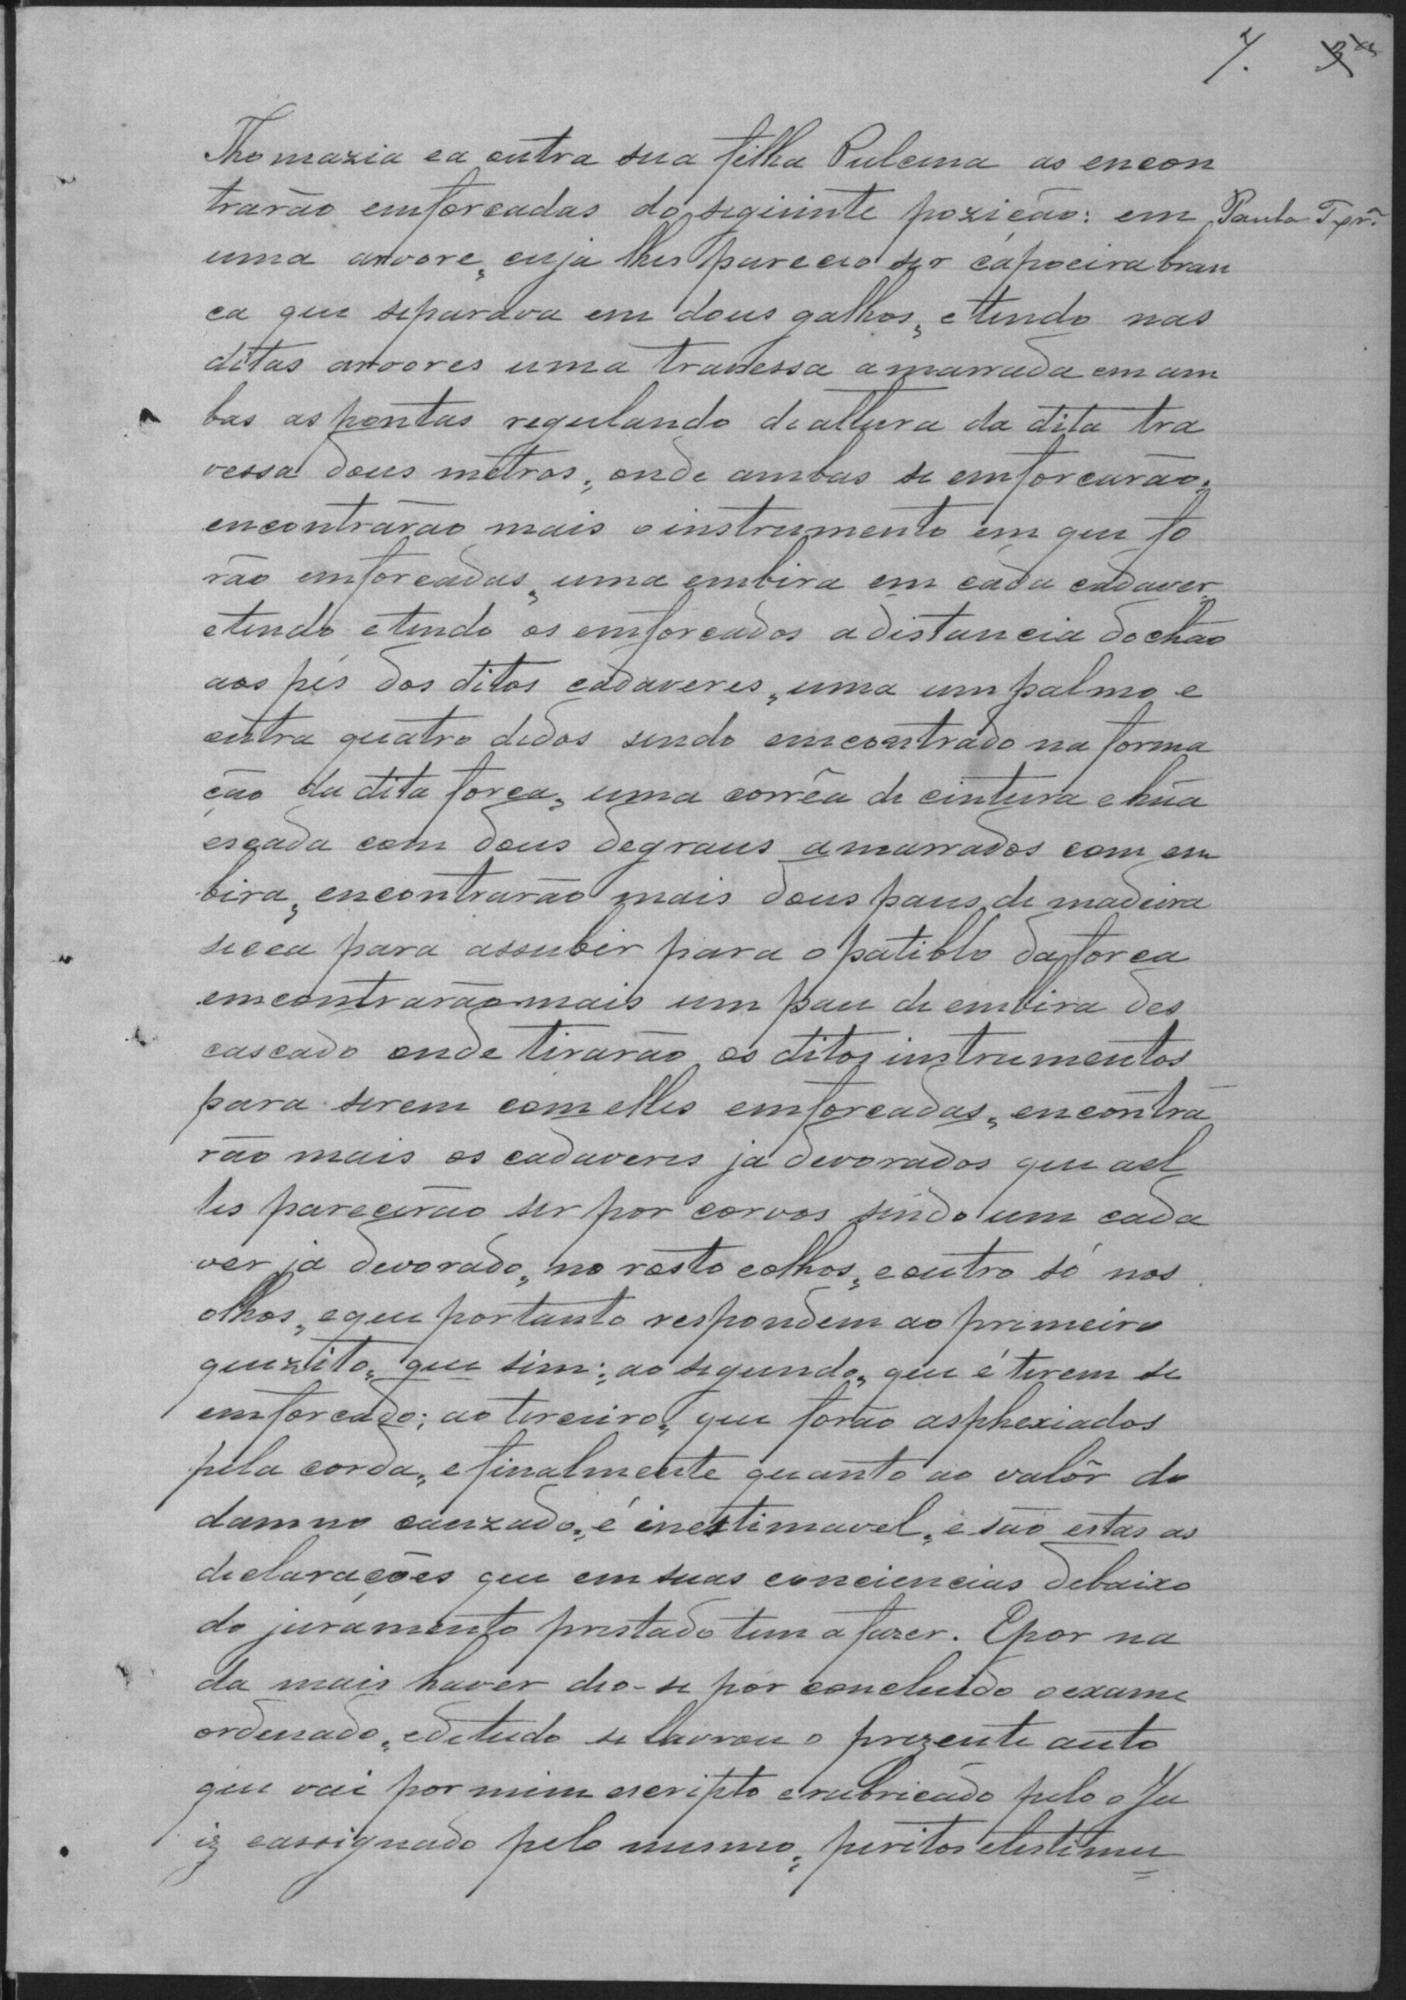 7. 3
Thomazia ea outra sua filha Pulcina as encon
trarão emforcadas do seguinte pozição: em
Paula
uma arvore, cuja lhes pareceo ser capoeira bran
ca que separava em dous galhos, etendo nas
ditas arvores uma travessa amarrada em am
bas as pontas regulando de altura da dita tra
vessa dous metros, onde ambas se emforcarão,
encontrarão mais o instrumento em que fo
rão emforcadas, uma embira em cada cadaver
etendo etendo os emforcados a distancia do chão
aos pés dos ditos cadaveres, uma um palmo e
outra quatro dedos sendo emcontrado na forma
ção da dita forca, uma corrêa de cintura e hũa
escada com dous degraus amarrados com em
bira, encontrarão mais dous paus de madeira
secca para assubir para o patiblo da forca
emcontrarão mais um pau de embira des
cascado onde tirarão os ditos instrumentos
para serem com elles emforcadas, encontra
rão mais os cadaveres já devorados que a el
les parecerão ser por corvos sendo um cada
ver já devorado, no rosto eolhos, eoutro só nos
olhos, eque portanto respondem ao primeiro
quezito, que sim; ao segundo, que é terem se
emforcado; ao terceiro, que forão asphexiados
pela corda, efinalmente quanto ao valôr do
damno cauzado, é inestimavel, e são estas as
declarações que em suas conciencias debaixo
do juramento prestado tem a fazer. Epor na
da mais haver deo-se por concluido o exame
ordenado, edetudo se lavrou o prezente auto
que vai por mim escripto erubricado pelo o Ju
iz eassignado pelo mesmo, peritos etestemu